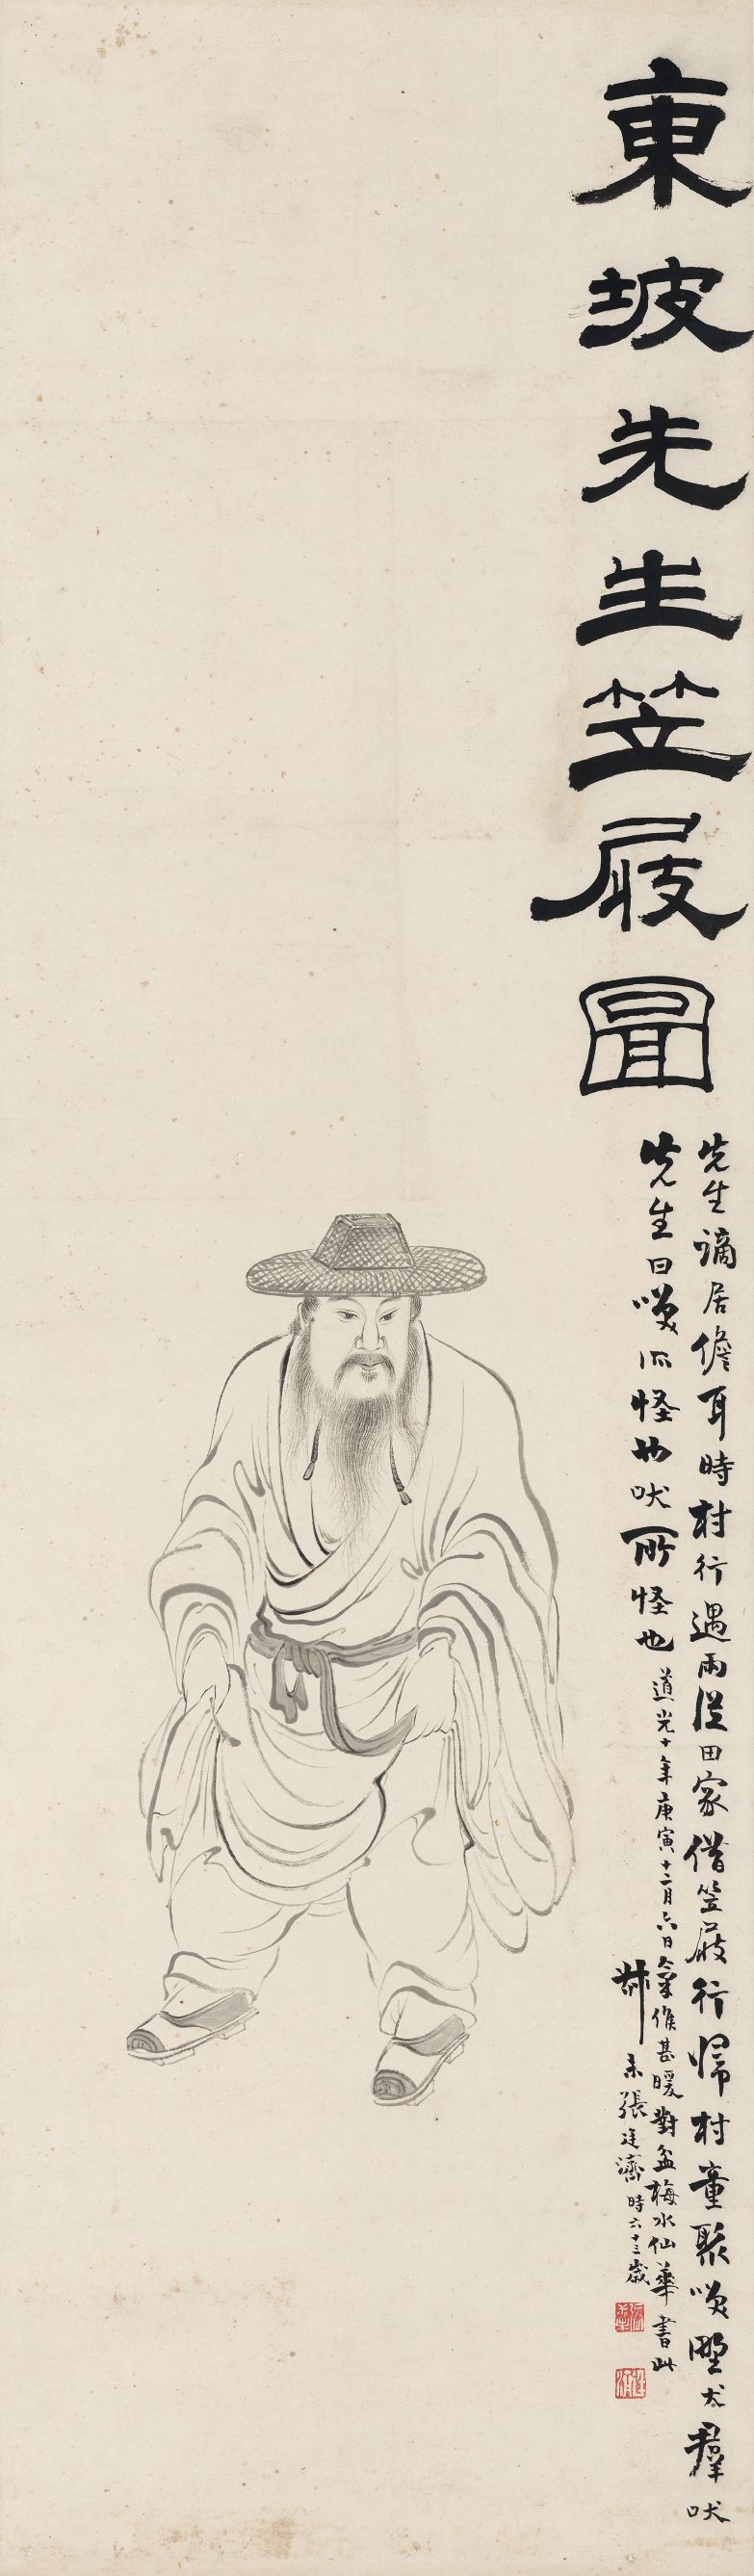 東坡先生笠屐圖
先生謫居儋耳時村行遇雨從田家借笠屐行歸村童聚唉野犬羣吠
先生曰唉所怪也吠所怪也
道光十年庚寅十二月六日氣候甚暖對盆梅水仙華書此
叔未張廷濟時六十三歲